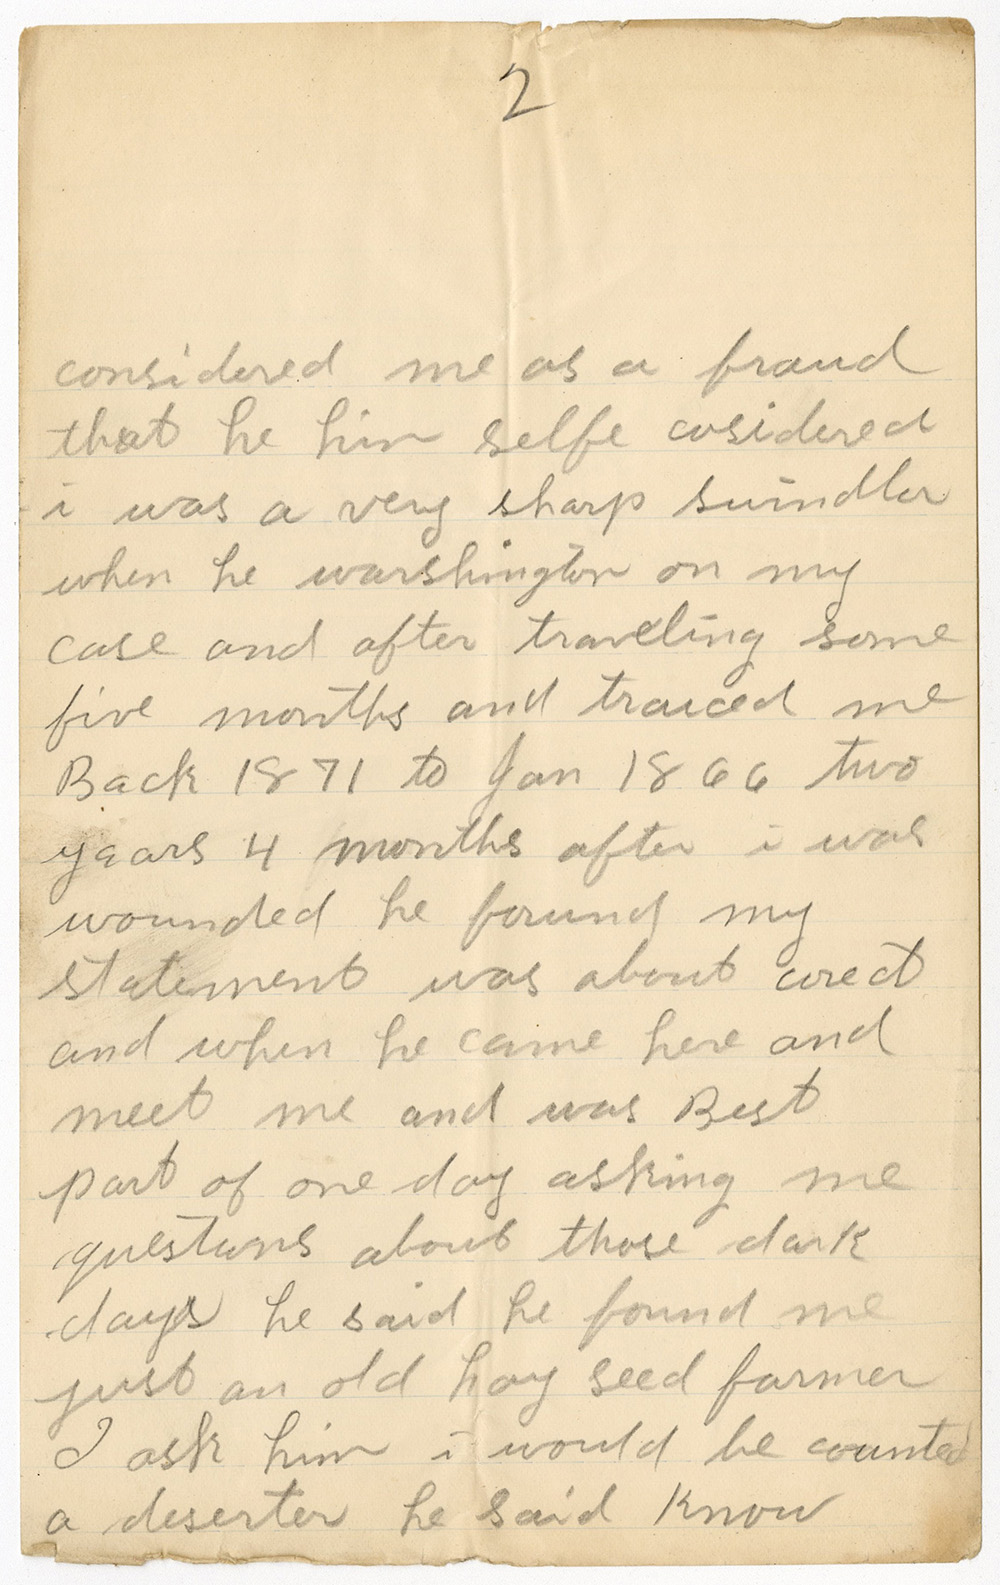 2
considered me as a fraud
that he him selfe cosidered
i was a very sharp swindler
when he warshington on my
case and after traveling some
five months and traiced me
Back 1871 to Jan 1866 two
years 4 months after i was
wounded he forund my
statement was about corect
and when he came here and
meet me and was Best
part of one day asking me
questians about those dark
days he said he found me
just an old hay seed farmer
I ask him i would be counted
a deserter he said Know